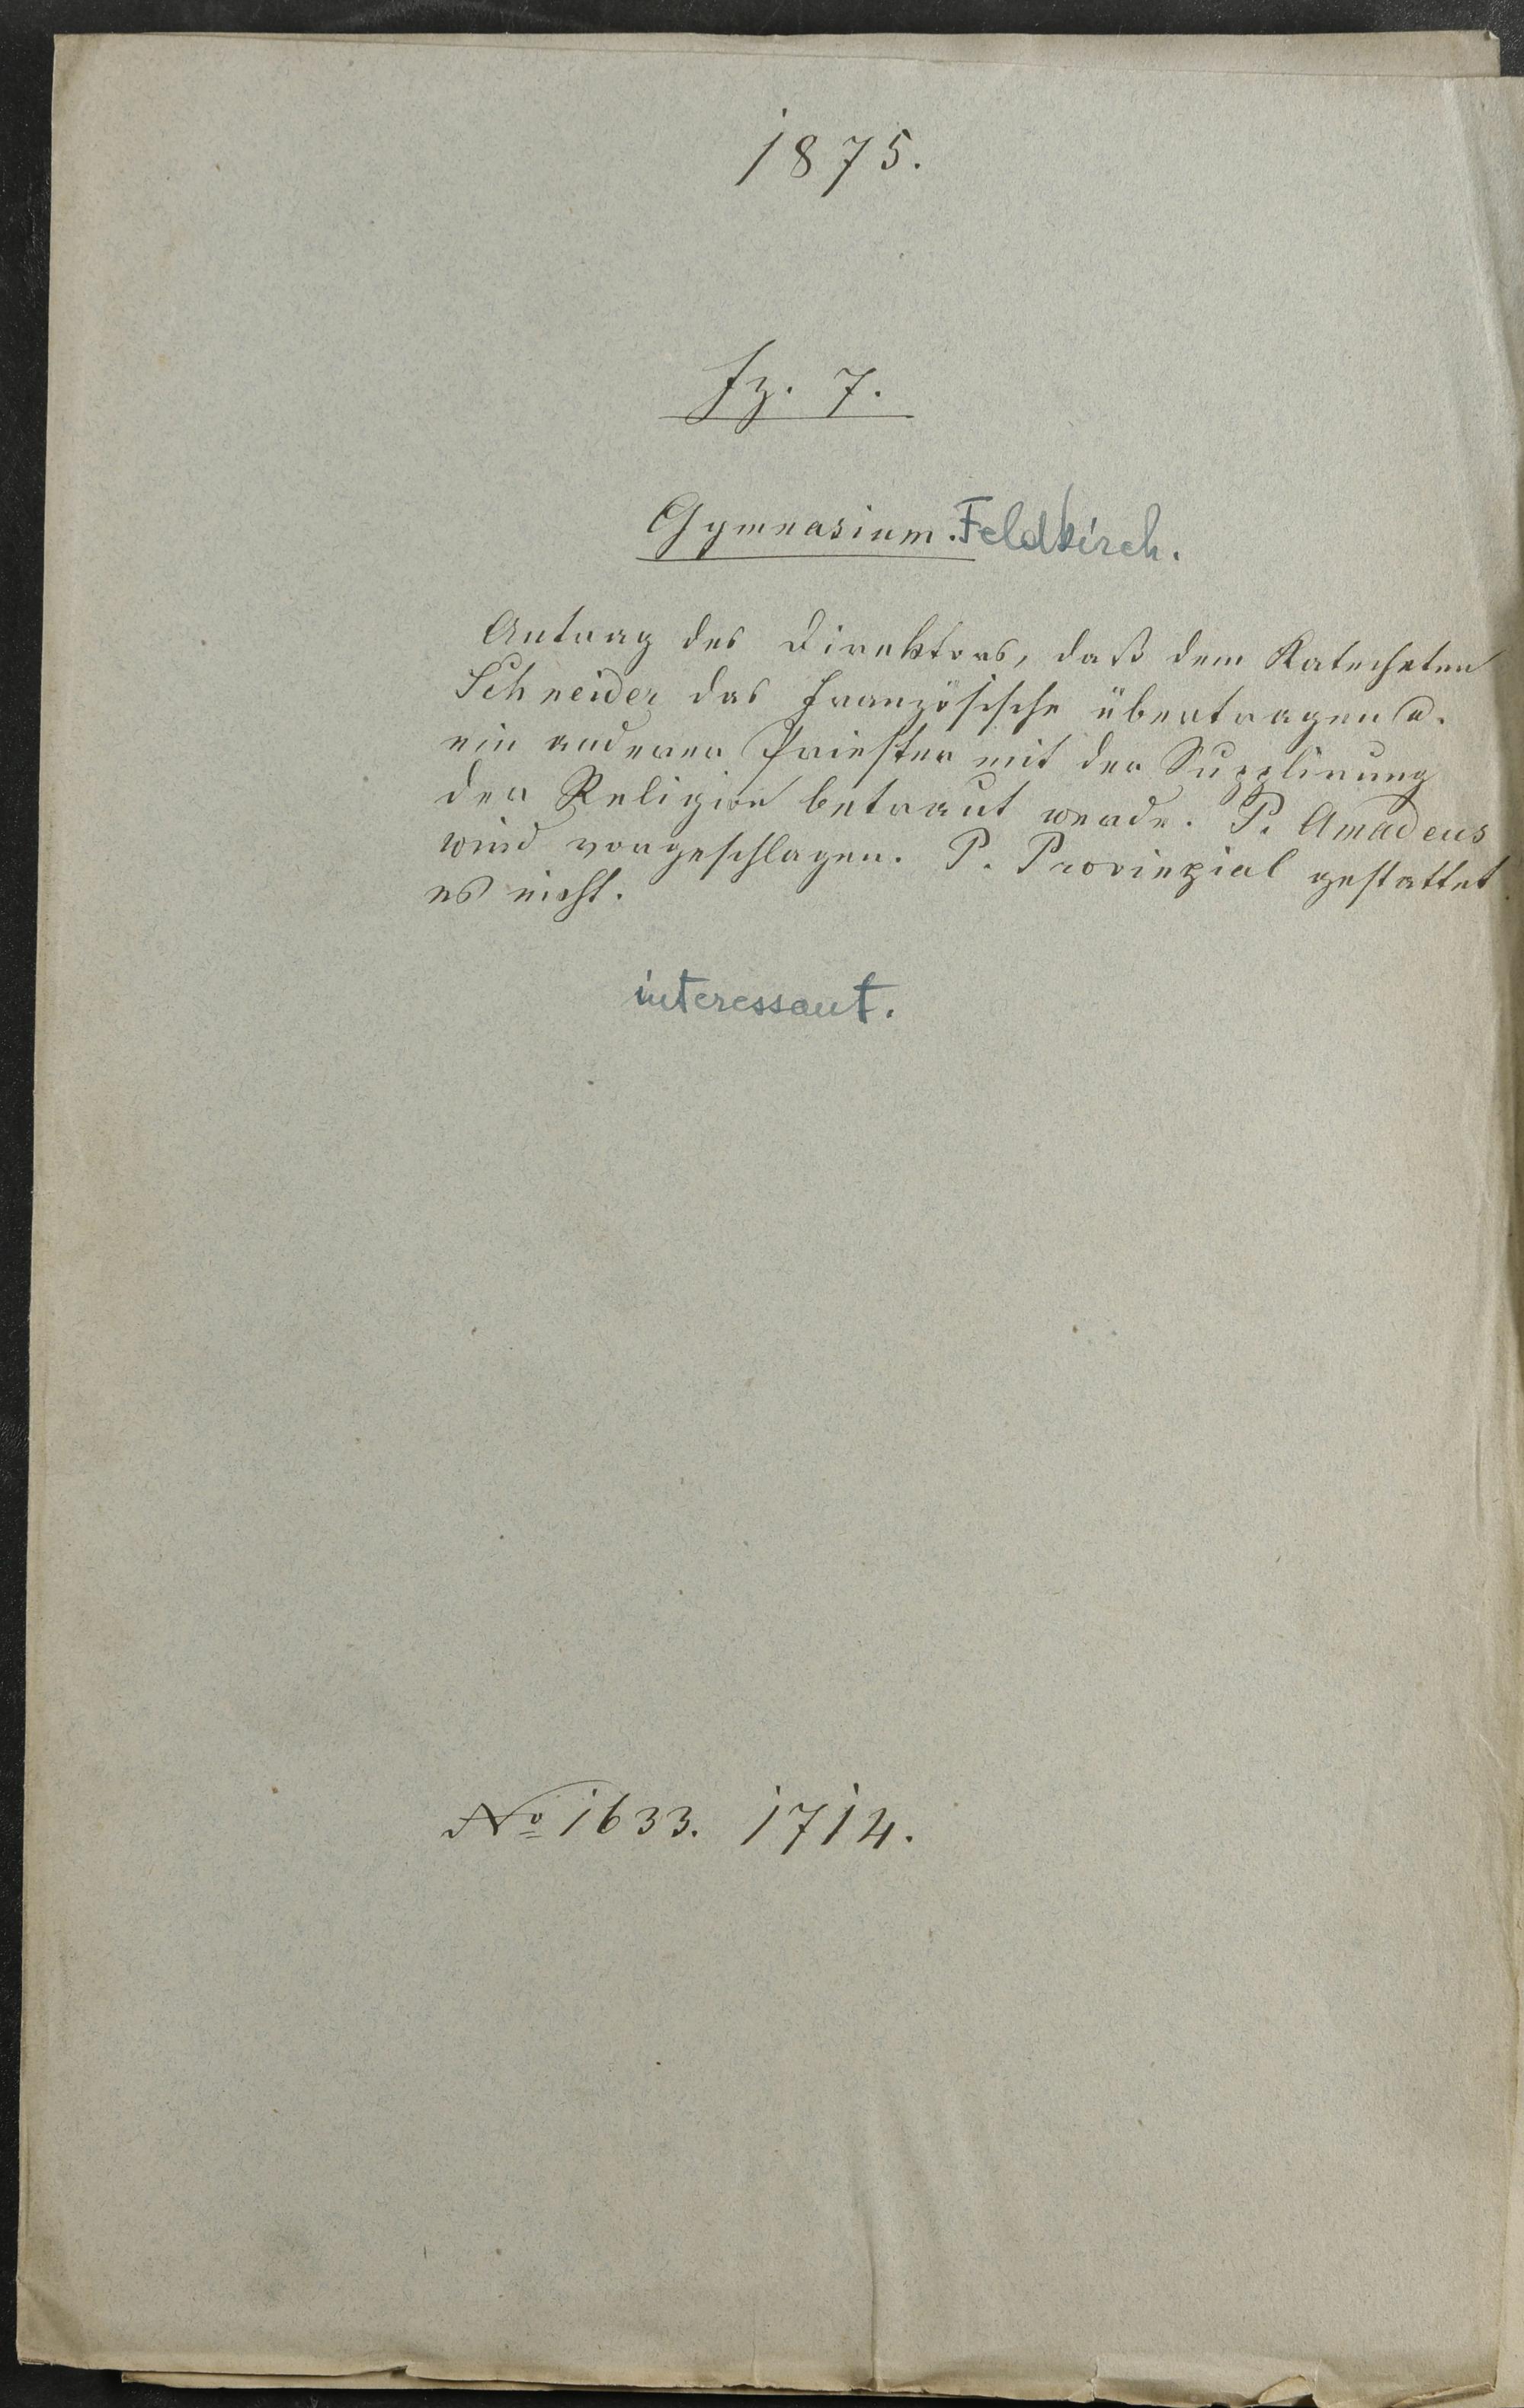 1875.
Fz. 7.
Gymnasium. Feldkirch.
Antrag des Direktors, daß dem Katecheten
Schneider das Französische übertragen u.
ein anderer Priester mit der Supplirung
der Religion betraut werde. P. Amadeus
wird vorgeschlagen. P. Provinzial gestattet
es nicht.
interessant.
No 1633. 1714.